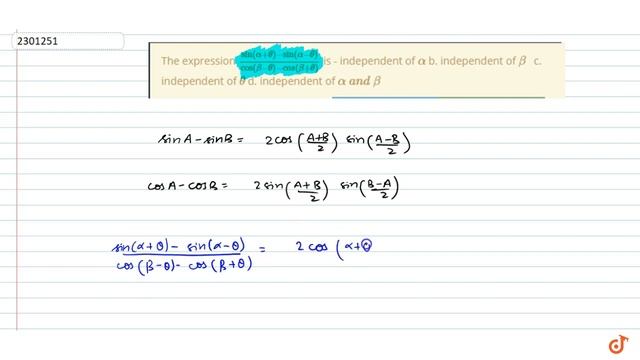 2301251
The expression sin(α+θ) - sin(α-θ) / cos(β-θ) - cos(β+θ) is - independent of α b. independent of β c.
independent of θ d. independent of α and β
sin A - sin B = 2 cos (A+B/2) sin (A-B/2)
cos A - cos B = 2 sin (A+B/2) sin (B-A/2)
sin(α+θ) - sin(α-θ) / cos(β-θ) - cos(β+θ) = 2 cos (α+θ
doubtnut